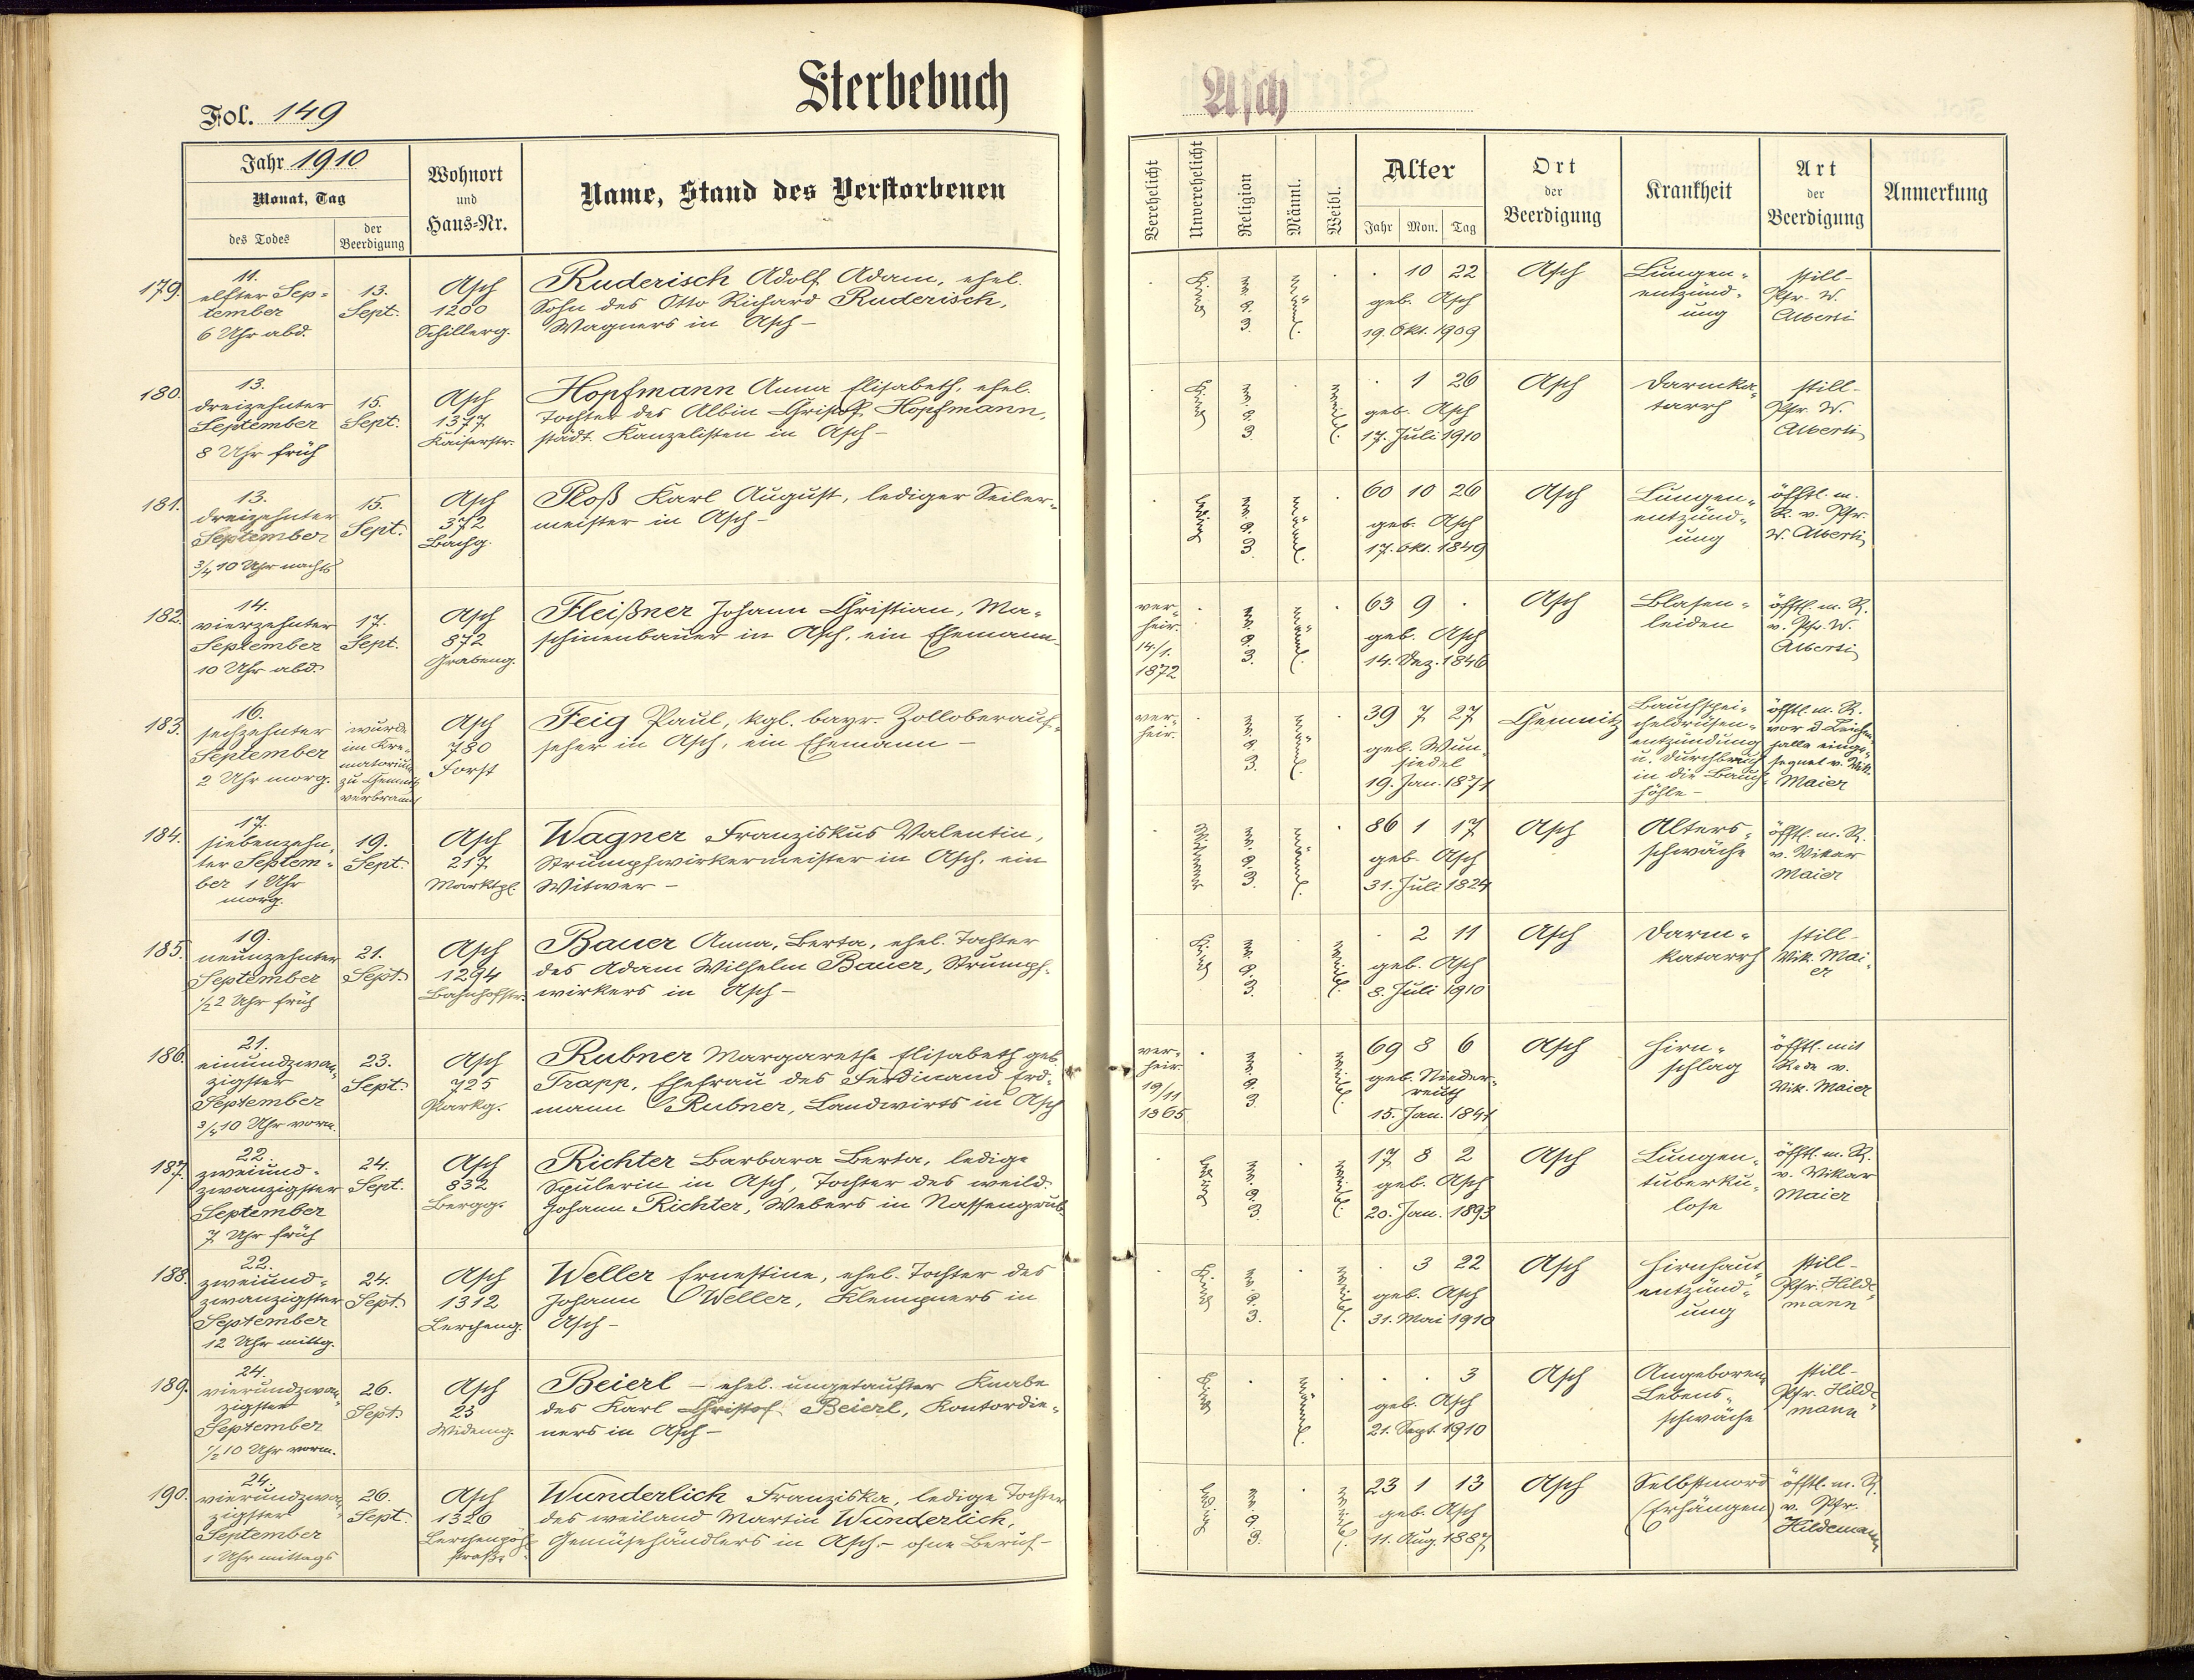 Sterbebuch
Asch
Fol. 149
Jahr 1910
Monat, Tag
des Todes
der Beerdigung
Wohnort
und
Haus-Nr.
Name, Stand des Verstorbenen
Verehelicht
Unverehelicht
Religion
Männl.
Weibl.
Alter
Jahr Mon. Tag
Ort
der
Beerdigung
Krankheit
Art
der
Beerdigung
Anmerkung
179.
11.
elfter Sep=
tember
6 Uhr abd.
13.
Sept.
Asch
1200
Schillerg.
Ruderisch Adolf Adam, ehel.
Sohn des Otto Richard Ruderisch,
Wagners in Asch –
Kind
männl.
10 22
geb. Asch
19. Okt. 1909
Asch
Lungen=
entzünd=
ung
still –
Pfr. W.
Alberti
180.
13.
dreizehnter
September
8 Uhr früh
15.
Sept.
Asch
1377
Kaiserstr.
Hopfmann Anna Elisabeth, ehel.
Tochter des Albin Christof Hopfmann,
städt. Kanzelisten in Asch –
Kind
weibl.
1 26
geb. Asch
17. Juli 1910
Asch
Darmka=
tarrh
still –
Pfr. W.
Alberti
181.
13.
dreizehnter
September
3/4 10 Uhr nachts
15.
Sept.
Asch
372
Bachg.
Ploß Karl August, lediger Seiler=
meister in Asch –
ledig
männl.
60 10 26
geb. Asch
17. Okt. 1849
Asch
Lungen=
entzünd=
ung
öfftl. m.
R. v. Pfr.
W. Alberti
182.
14.
vierzehnter
September
10 Uhr abd.
17.
Sept.
Asch
872
Grabeng.
Fleißner Johann Christian, Ma=
schinenbauer in Asch, ein Ehemann
ver=
heir.
14/1.
1872
männl.
63 9 .
geb. Asch
14. Dez. 1846
Asch
Blasen=
leiden
öfftl. m. R.
v. Pfr. W.
Alberti
183.
16.
sechzehnter
September
2 Uhr morg.
wurde
im Kre=
matorium
zu Chemnitz
verbrannt
Asch
780
Forst
Feig Paul, kgl. bayr. Zolloberauf=
seher in Asch, ein Ehemann –
ver=
heir.
männl.
39 7 27
geb. Wun=
siedel
19. Jan. 1871
Chemnitz
Bauchspei=
cheldrüsen=
entzündung
u. Durchbruch
in die Bauch=
höhle –
öfftl. m. R.
vor d. Leichen=
halle einge=
segnet v. Vik.
Maier
184.
17.
siebenzehn=
ter Septem=
ber 1 Uhr
morg.
19.
Sept.
Asch
217
Marktpl.
Wagner Franziskus Valentin,
Strumpfwirkermeister in Asch, ein
Witwer –
Witwer
männl.
86 1 17
geb. Asch
31. Juli 1824
Asch
Alters=
schwäche
öfftl. m. R.
v. Vikar
Maier
185.
19.
neunzehnter
September
1/2 2 Uhr früh
21.
Sept.
Asch
1294
Bahnhofstr.
Bauer Anna, Berta, ehel. Tochter
des Adam Wilhelm Bauer, Strumpf=
wirkers in Asch –
Kind
weibl.
2 11
geb. Asch
8. Juli 1910
Asch
Darm=
katarrh
still –
Vik. Mai=
er
186.
21.
einundzwan=
zigster
September
3/4 10 Uhr vorm.
23.
Sept.
Asch
725
Parkg.
Rubner Margarethe Elisabeth geb.
Trapp, Ehefrau des Ferdinand Erd=
mann Rubner, Landwirts in Asch
ver=
heir.
19/11
1865
weibl.
69 8 6
geb. Nieder=
reuth
15. Jan. 1841
Asch
Hirn=
schlag
öfftl. mit
Rede v.
Vik. Maier
187.
22.
zweiund=
zwanzigster
September
7 Uhr früh
24.
Sept.
Asch
832
Bergg.
Richter Barbara Berta, ledige
Spulerin in Asch, Tochter des weild.
Johann Richter, Webers in Nassengrub
ledig
weibl.
17 8 2
geb. Asch
20. Jan. 1893
Asch
Lungen=
tuberku=
lose
öfftl. m. R.
v. Vikar
Maier
188.
22.
zweiund=
zwanzigster
September
12 Uhr mittg.
24.
Sept.
Asch
1312
Lercheng.
Weller Ernestine, ehel. Tochter des
Johann Weller, Klempners in
Asch –
Kind
weibl.
3 22
geb. Asch
31. Mai 1910
Asch
Hirnhaut=
entzünd=
ung
still –
Pfr. Hilde=
mann
189.
24.
vierundzwan=
zigster
September
1/2 10 Uhr vorm.
26.
Sept.
Asch
23
Widemg.
Beierl – ehel. ungetaufter Knabe
des Karl Christof Beierl, Kontordie=
ners in Asch –
Kind
männl.
3
geb. Asch
21. Sept. 1910
Asch
Angeborene
Lebens=
schwäche
still –
Pfr. Hilde=
mann
190.
24.
vierundzwan=
zigster
September
1 Uhr mittags
26.
Sept.
Asch
1326
Lerchenpöhl=
straße
Wunderlich Franziska, ledige Tochter
des weiland Martin Wunderlich,
Gemüsehändlers in Asch – ohne Beruf –
ledig
weibl.
23 1 13
geb. Asch
11. Aug. 1887
Asch
Selbstmord
(Erhängen)
öfftl. m. R.
v. Pfr.
Hildemann